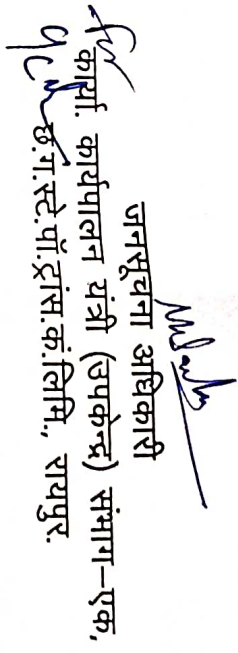 जनसूचना अधिकारी
कार्या. कार्यपालन यंत्री (उपकेन्द्र) संभाग–एक,
छ.ग.स्टे.पॉ.ट्रांस.कं.लिमि., रायपुर.